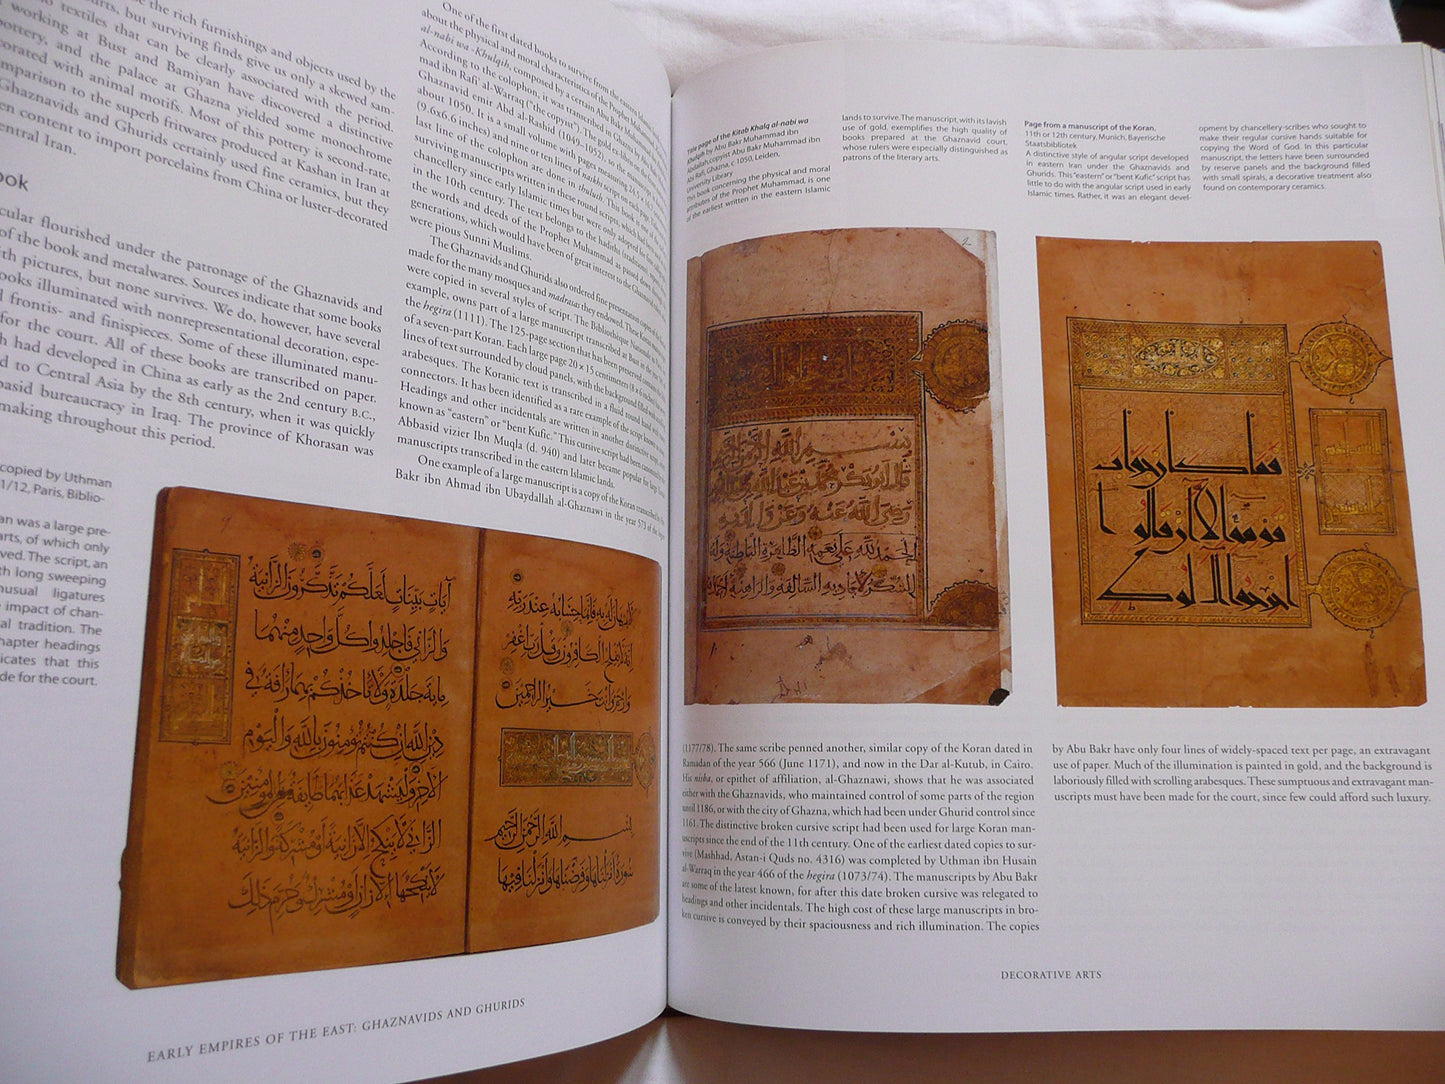 e the rich furnishings and objects used by the
arts, but surviving finds give us only a skewed sam-
o textiles that can be clearly associated with the period.
working at Bust and Bamiyan have discovered a distinctive
pottery, and the palace at Ghazna yielded some monochrome
corated with animal motifs. Most of this pottery is second-rate,
mparison to the superb fritwares produced at Kashan in Iran at
Ghaznavids and Ghurids certainly used fine ceramics, but they
en content to import porcelains from China or luster-decorated
entral Iran.
ook
cular flourished under the patronage of the Ghaznavids and
of the book and metalwares. Sources indicate that some books
ith pictures, but none survives. We do, however, have several
ooks illuminated with nonrepresentational decoration, espe-
d frontis- and finispieces. Some of these illuminated manu-
for the court. All of these books are transcribed on paper.
h had developed in China as early as the 2nd century B.C.,
d to Central Asia by the 8th century, when it was quickly
basid bureaucracy in Iraq. The province of Khorasan was
making throughout this period.
copied by Uthman
1/12, Paris, Biblio-
an was a large pre-
arts, of which only
ved. The script, an
th long sweeping
nusual ligatures
e impact of chan-
al tradition. The
hapter headings
icates that this
de for the court.
One of the first dated books to survive from the eastern Islamic
about the physical and moral characteristics of the Prophet
al-nabi wa-Khulqih, composed by a certain Abu Bakr
According to the colophon, it was transcribed in Ghazna by
mad ibn Rafi' al-Warraq ("the copyist"). The gold
Ghaznavid emir Abd al-Rashid (1049–1052), so the
about 1050. It is a small volume with pages measuring
(9.6x6.6 inches) and nine or ten lines of naskhi script on each page.
last line of the colophon are done in thuluth. This book is one of the
surviving manuscripts written in these round scripts, which had been
chancellery since early Islamic times but were only adopted for
in the 10th century. The text belongs to the hadith (traditions) of
the words and deeds of the Prophet Muhammad as passed down
generations, which would have been of great interest to the Ghaznavids
were pious Sunni Muslims.
The Ghaznavids and Ghurids also ordered fine presentation copies of the
made for the many mosques and madrasas they endowed. These Korans
were copied in several styles of script. The Bibliothèque Nationale in
example, owns part of a large manuscript transcribed at Bust in the
the hegira (1111). The 125-page section that has been preserved
of a seven-part Koran. Each large page 20 × 15 centimeters (8 x 6 inches)
lines of text surrounded by cloud panels, with the background filled with
arabesques. The Koranic text is transcribed in a fluid round hand with
connectors. It has been identified as a rare example of the script
Headings and other incidentals are written in another distinctive script
known as "eastern" or "bent Kufic." This cursive script had been canonized by the
Abbasid vizier Ibn Muqla (d. 940) and later became popular for large Koran
manuscripts transcribed in the eastern Islamic lands.
One example of a large manuscript is a copy of the Koran transcribed by
Bakr ibn Ahmad ibn Ubaydallah al-Ghaznawi in the year 573 of the hegira
آيات بينات لعلكم تذكرون الزانية
والزاني فاجلدوا كل واحد منهما
ماية جلدة ولا تاخذكم بهما رافة في
دين الله ان كنتم تومنون بالله واليوم
الاخر وليشهد عذابهما طايفة من المومنين
الزاني لا ينكح الا زانية او مشركة والزانية
لا ينكحها الا زان او مشرك وحرم ذلك
له به فانما حسابه عند ربه
انه لا يفلح الكافرون وقل رب اغفر
وارحم وانت خير الراحمين
بسم الله الرحمن الرحيم
سورة انزلناها وفرضناها وانزلنا فيها
EARLY EMPIRES OF THE EAST: GHAZNAVIDS AND GHURIDS
Title page of the Kitab Khalq al-nabi wa
Khulqih by Abu Bakr Muhammad ibn
Abdallah,copyist Abu Bakr Muhammad ibn
Abi Rafi, Ghazna, c 1050, Leiden,
University Library
This book concerning the physical and moral
attributes of the Prophet Muhammad, is one
of the earliest written in the eastern Islamic
lands to survive. The manuscript, with its lavish
use of gold, exemplifies the high quality of
books prepared at the Ghaznavid court,
whose rulers were especially distinguished as
patrons of the literary arts.
Page from a manuscript of the Koran.
11th or 12th century, Munich, Bayerische
Staatsbibliotek
A distinctive style of angular script developed
in eastern Iran under the Ghaznavids and
Ghurids. This "eastern" or "bent Kufic" script has
little to do with the angular script used in early
Islamic times. Rather, it was an elegant devel-
opment by chancellery-scribes who sought to
make their regular cursive hands suitable for
copying the Word of God. In this particular
manuscript, the letters have been surrounded
by reserve panels and the background filled
with small spirals, a decorative treatment also
found on contemporary ceramics.
2
بسم الله الرحمن الرحيم
قال ابو بكر محمد بن عبد الله
رضي الله عنه وعن والديه
الحمد لله على نعمه الظاهرة والباطنة وله
الشكر
(1177/78). The same scribe penned another, similar copy of the Koran dated in
Ramadan of the year 566 (June 1171), and now in the Dar al-Kutub, in Cairo.
His nisba, or epithet of affiliation, al-Ghaznawi, shows that he was associated
either with the Ghaznavids, who maintained control of some parts of the region
until 1186, or with the city of Ghazna, which had been under Ghurid control since
1161. The distinctive broken cursive script had been used for large Koran man-
uscripts since the end of the 11th century. One of the earliest dated copies to sur-
vive (Mashhad, Astan-i Quds no. 4316) was completed by Uthman ibn Husain
al-Warraq in the year 466 of the hegira (1073/74). The manuscripts by Abu Bakr
are some of the latest known, for after this date broken cursive was relegated to
headings and other incidentals. The high cost of these large manuscripts in bro-
ken cursive is conveyed by their spaciousness and rich illumination. The copies
by Abu Bakr have only four lines of widely-spaced text per page, an extravagant
use of paper. Much of the illumination is painted in gold, and the background is
laboriously filled with scrolling arabesques. These sumptuous and extravagant man-
uscripts must have been made for the court, since few could afford such luxury.
DECORATIVE ARTS